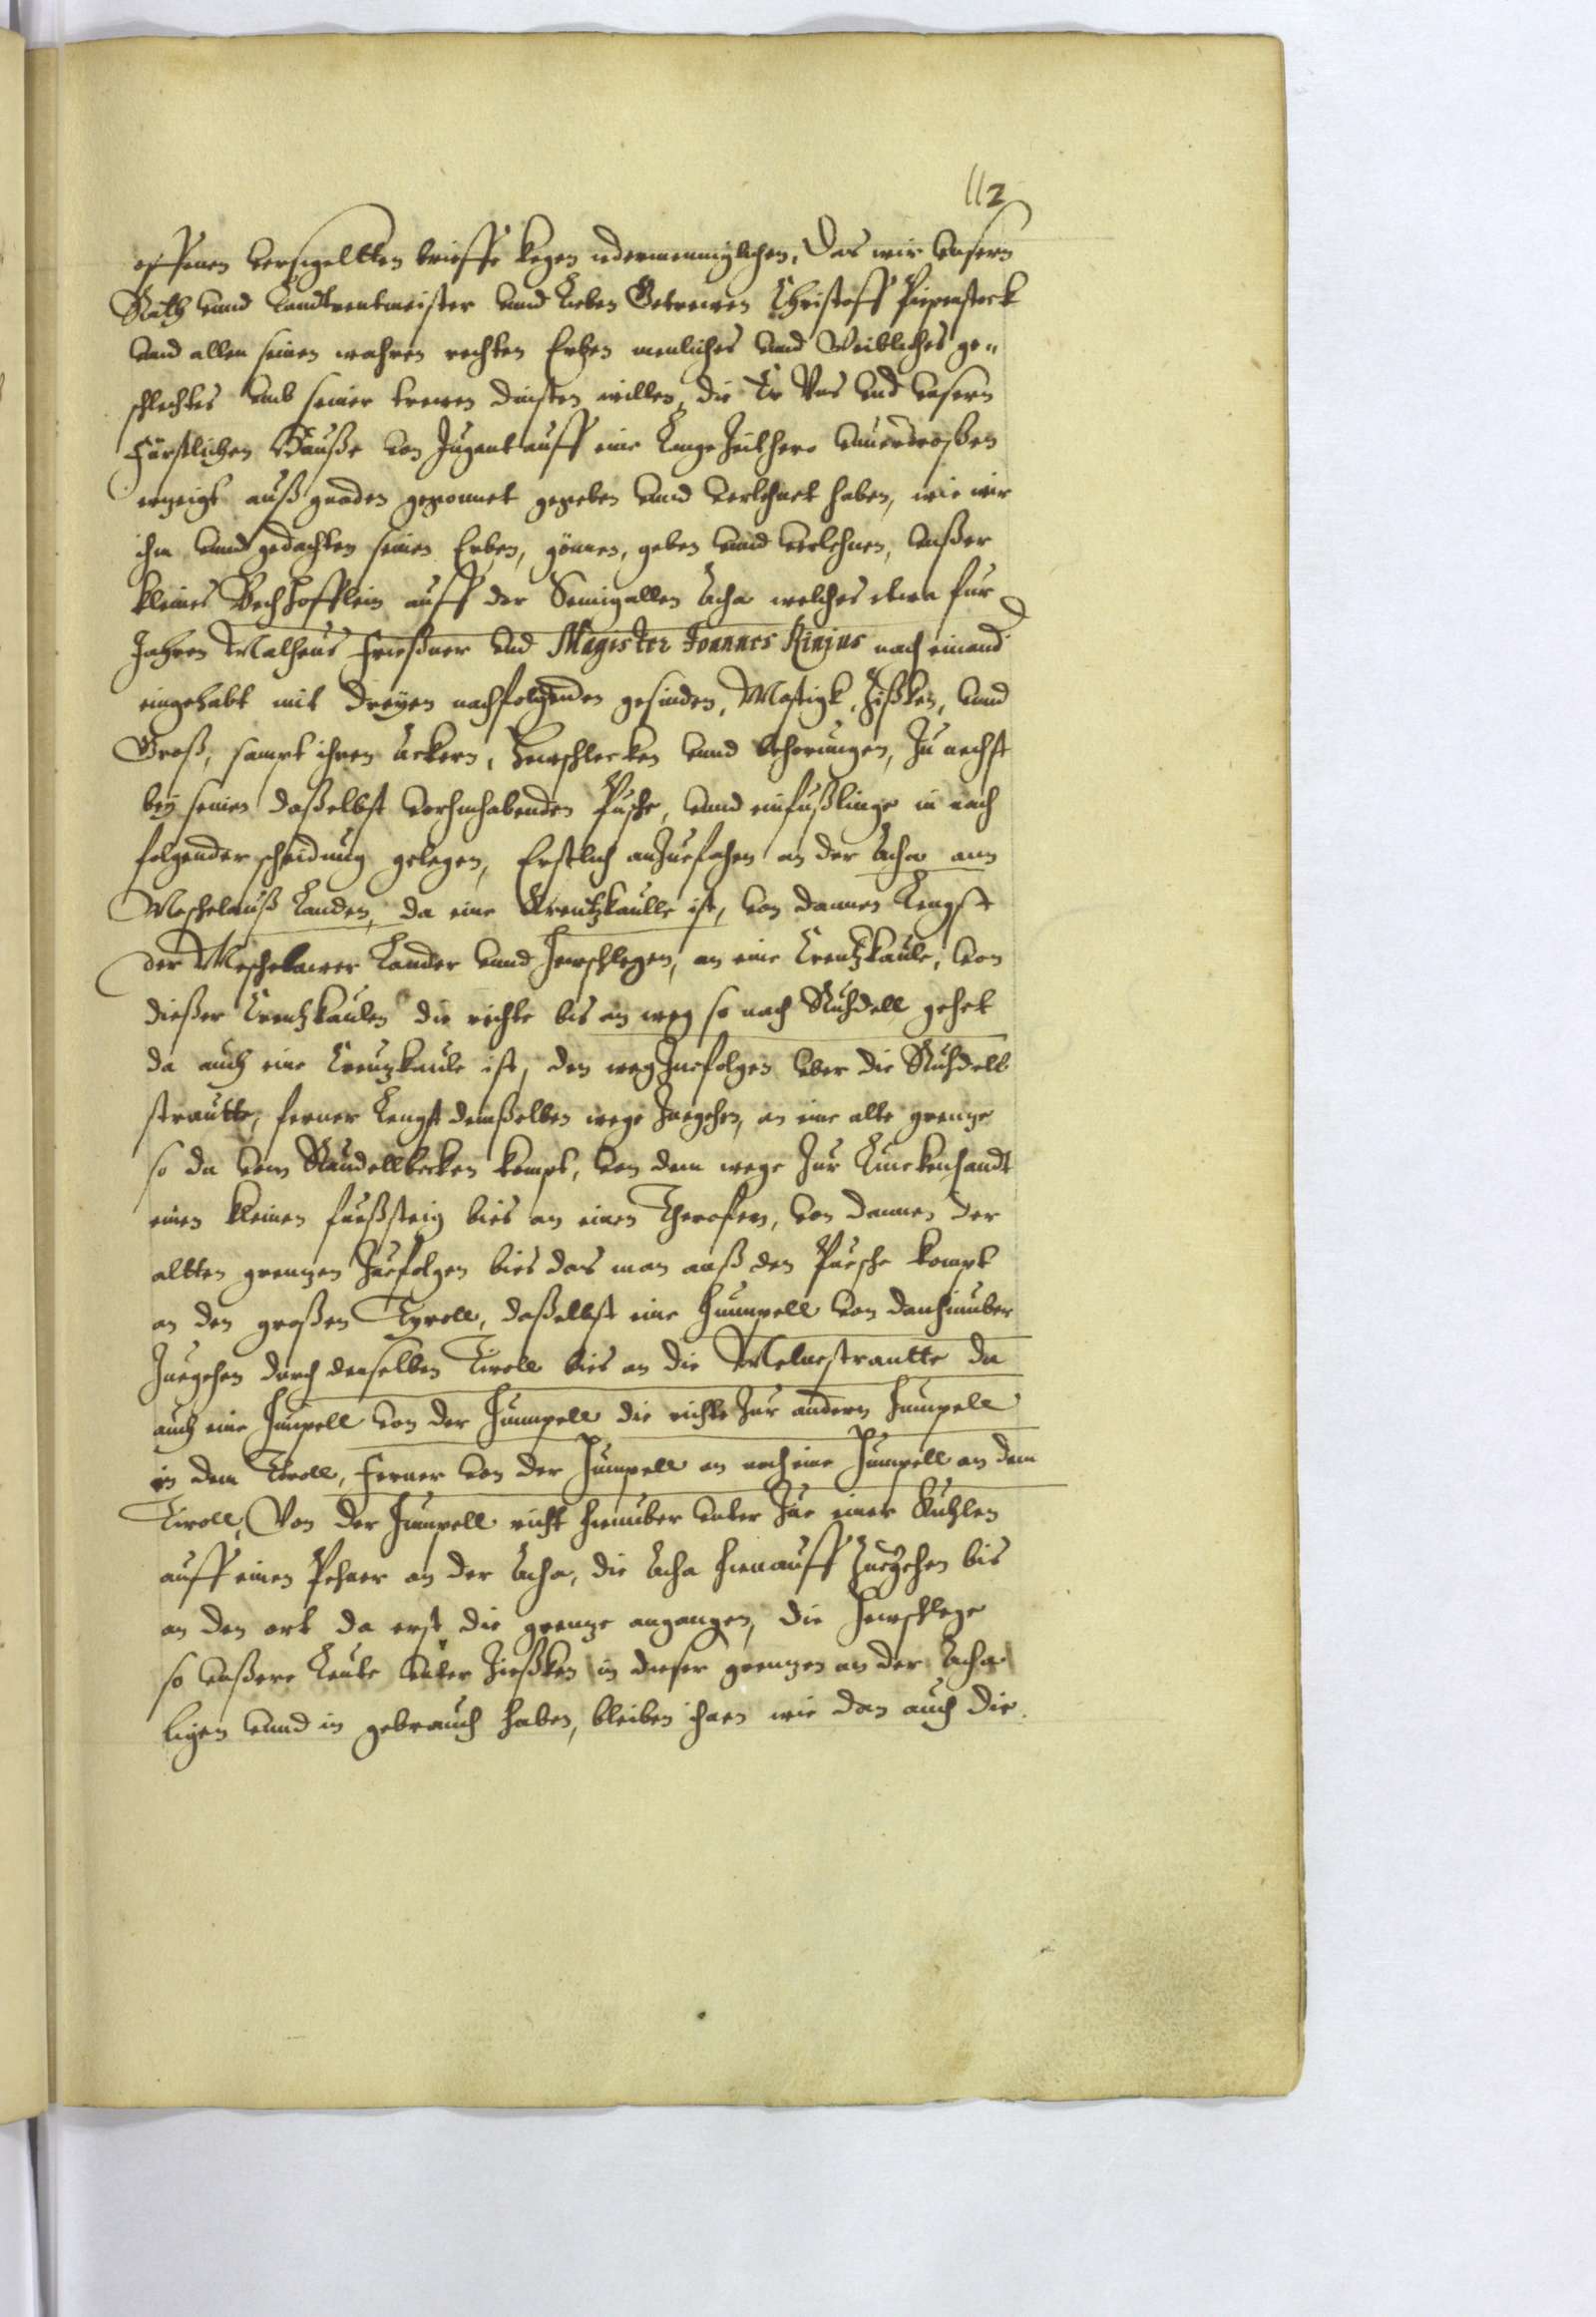 112
offenen versigeltten brieffe kegen idermenniglichen, Das wir unsern
Rath unnd Landtrentmeister unnd Lieben Getrewen Christoff Piepenstock
unnd allen seinen wahren rechten Erben menliches unnd Weibliches ge„
schlechtes umb seiner trewen dinsten willen, die Er Uns und unsern
Fürstlichen Hauße von Jugent auff eine Lange Zeit hero unverdroßen
erzeigt auß gnaden gegonnet gegeben unnd verlehnet haben, wie wir
ihm unnd gedachten seinen Erben, gönnen, geben unnd verlehnen, unßer
kleines Vech hofflein auff der Semigaller Acha welches etwa fur
Jahren Matheus Frießner und Magister Joannes Rivius nach einand
eingehabt mit dreyen nachfolgenden gesinden, Mastigk, Zißken, unnd
Groß, sampt ihren Ackern, Hewschlecken unnd behorungen, Zu nechst
bey seinen daßelbst vorhinhabenden Pusche, unnd einfußlinge in nach
folgender scheidung gelegen, Erstlich anZuefahen an der Acha ann
Meschelauß Landen, da eine Kreutzkaulle ist, von dannen Lengst
der Meschelawer Lander unnd Hewschlegen, an eine Creutzkaule, von
dießer Creutzkaulen die richte bis an weg so nach Ruhdell gehet
da auch eine Creutzkaule ist, den weg Zuefolgen uber die Ruhdell
strautte, ferner Lengst demßelben wege Zuegehen, an eine alte grenze
so da vom Raudellbecken kompt, von dem wege Zur Linckenhandt
einen kleinen fueßsteig bies an einen Therofen, von dannen der
altten grenzen Zuefolgen bies das man auß den Pusche kompt
an den großen Tyroll, daßelbst eine Huempell von dan hinuber
Zuegehen durch denselben Tiroll bies an die Melnestrautte da
auch eine Humpell von der Huempell die richte Zur andern Humpell
in dem Tiroll, Ferner von der Humpell an noch eine Humpell an dem
Tiroll, Von der Humpell richt hienuber unter Zue einer Kuhlen
auff einen Pehner an der Acha, die Acha hienauff Zuegehen bis
an den ort da erst die grenze angangen, die Hewschlege
so unßere Leute unter Zießken in dieser grenzen an der Acha
ligen unnd in gebrauch haben, bleiben ihnen wie dan auch die